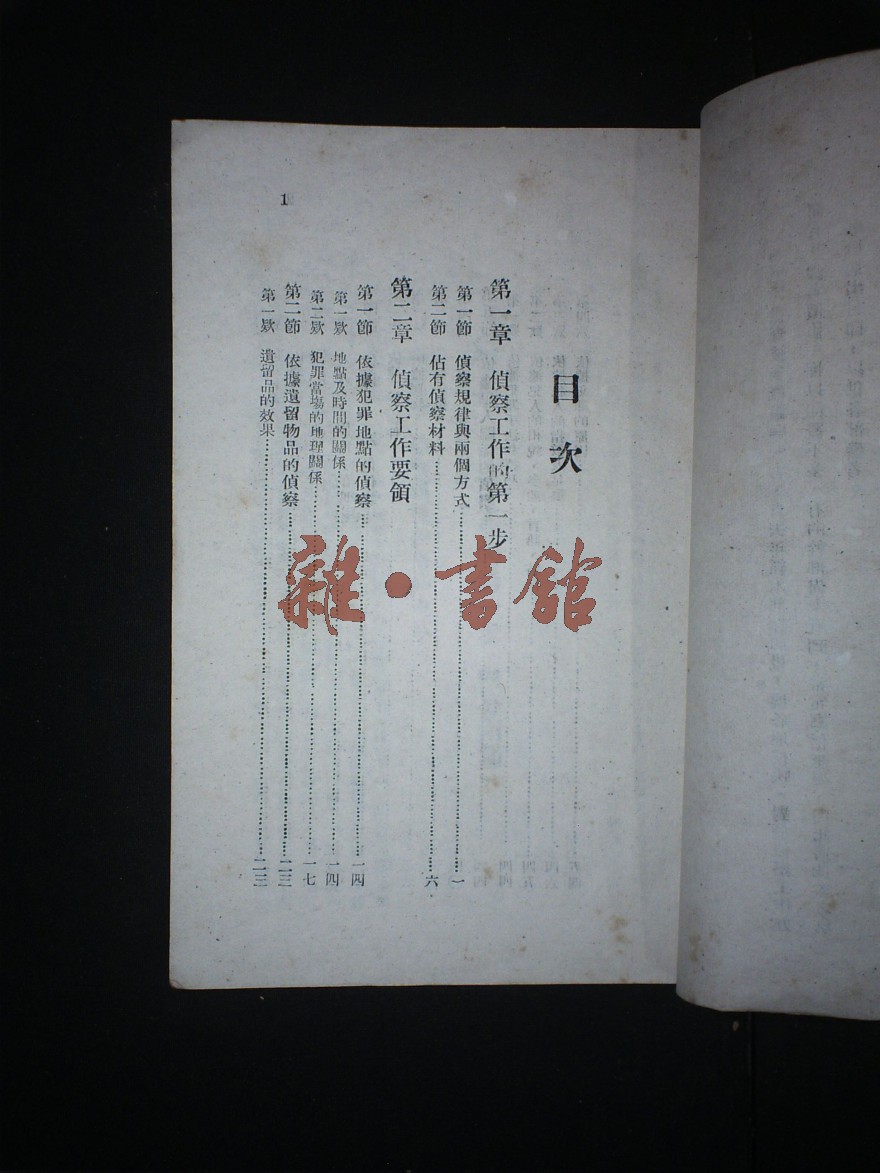 目次
第一章 偵察工作的第一步
第一節 偵察規律與兩個方式……一
第二節 佔有偵察材料……六
第二章 偵察工作要領
第一節 依據犯罪地點的偵察……一四
第一欵 地點及時間的關係……一四
第二欵 犯罪當場的地理關係……一七
第二節 依據遺留物品的偵察……二三
第一欵 遺留品的效果……二三
1
雜·書館